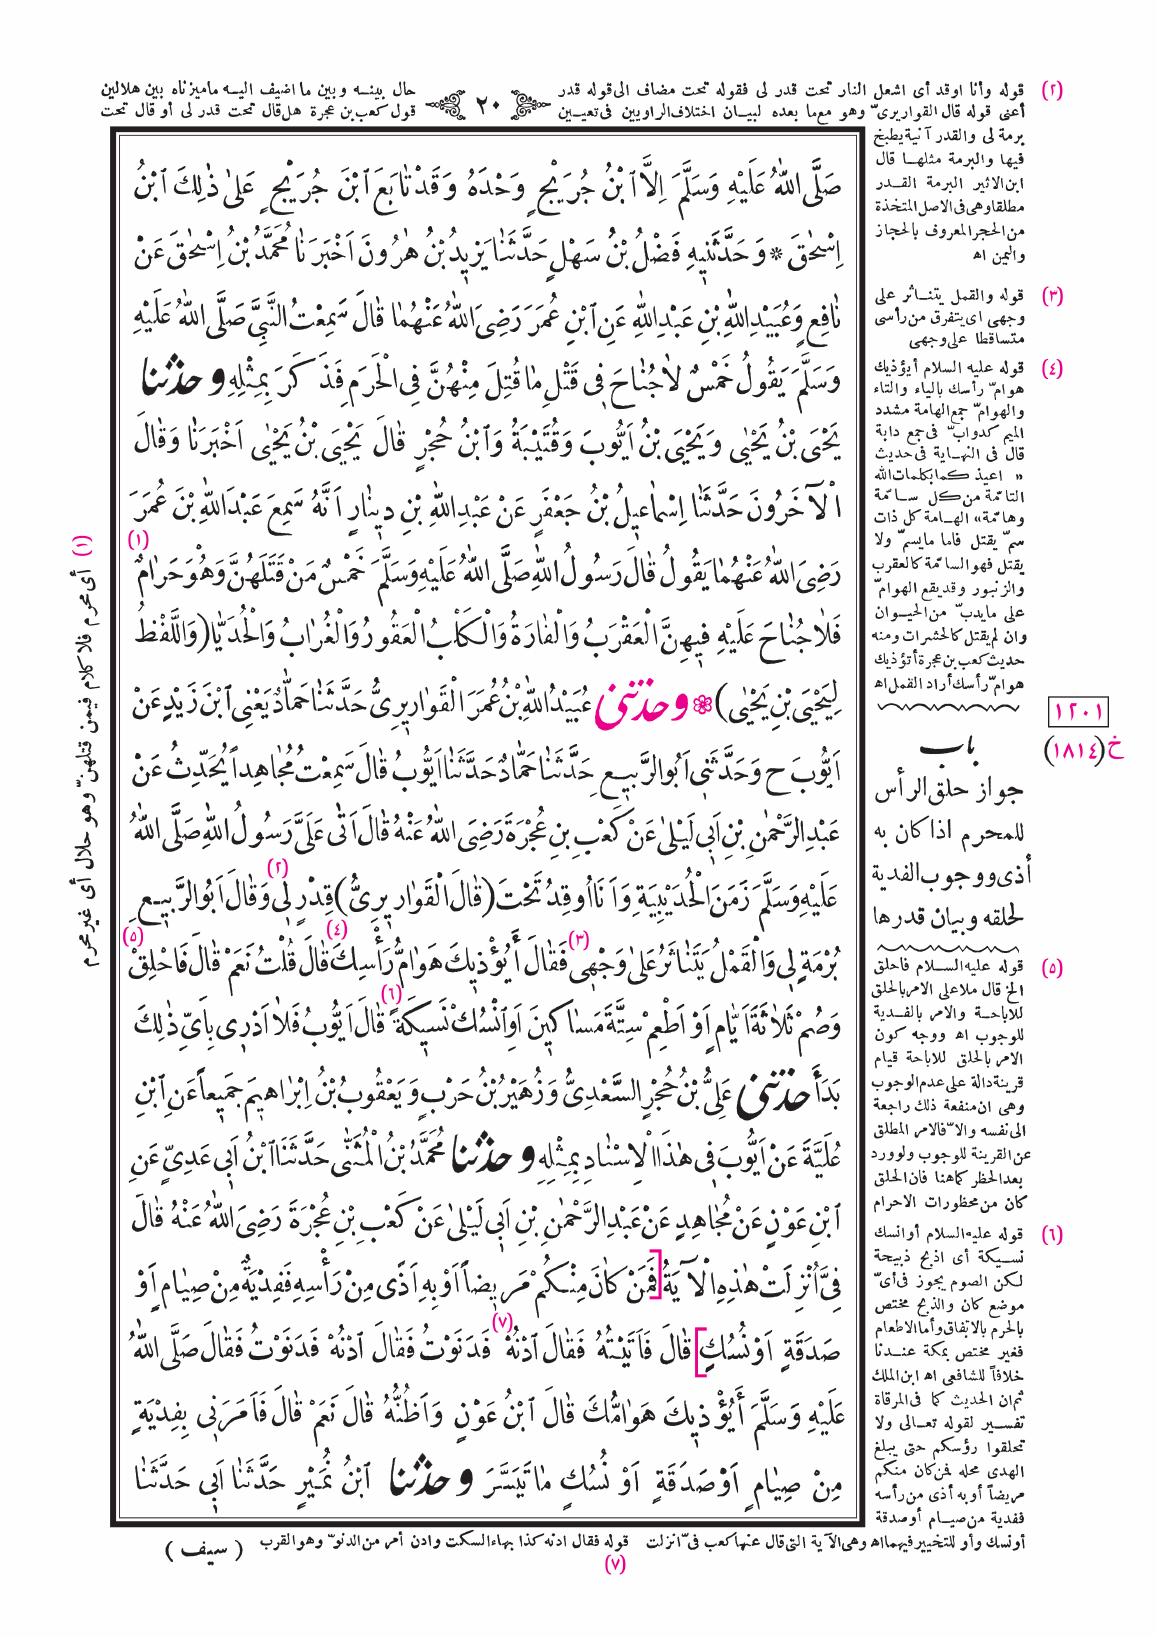 (٢) قوله وأنا اوقد أى اشعل النار تحت قدر لى فقوله تحت مضاف الى قوله قدر
٢٠
حال بينـه وبين ما اضيف اليـه ما ميزناه بين هلالين
أعنى قوله قال القواريرىّ وهو مع ما بعده لبيـان اختلاف الراويين فى تعيـين
قول كعب بن عجرة هل قال تحت قدر لى أو قال تحت
برمة لى والقدر آنية يطبخ
فيها والبرمة مثلهـا قال
ابن الاثير البرمة القـدر
مطلقا وهى فى الاصل المتخذة
من الحجر المعروف بالحجاز
واليمن اه
(٣) قوله والقمل يتنـاثر على
وجهى اى يتفرق من رأسى
متساقطا على وجهى
(٤) قوله عليه السلام أيؤذيك
هوامّ رأسك بالياء والتاء
والهوامّ جمع الهامة مشدد
الميم كدوابّ فى جمع دابة
قال فى النهـاية فى حديث
« اعيذ كما بكلمات الله
التامّة من كل سـامّة
وهامّة» الهـامة كل ذات
سمّ يقتل فاما ما يسمّ ولا
يقتل فهو السامّة كالعقرب
والزنبور وقد يقع الهوامّ
على ما يدبّ من الحيـوان
وان لم يقتل كالحشرات ومنه
حديث كعب بن عجرة أتؤذيك
هوامّ رأسك أراد القمل اه
١٢٠١
خ (١٨١٤)
باب
جواز حلق الرأس
للمحرم اذا كان به
أذى ووجوب الفدية
لحلقه وبيان قدرها
(٥) قوله عليه السـلام فاحلق
الخ قال ملا على الامر بالحلق
للاباحـة والامر بالفـدية
للوجوب اه ووجه كون
الامر بالحلق للاباحة قيام
قرينة دالة على عدم الوجوب
وهى ان منفعة ذلك راجعة
الى نفسه والاّ فالامر المطلق
عن القرينة للوجوب ولو ورد
بعد الحظر كما هنا فان الحلق
كان من محظورات الاحرام
(٦) قوله عليه السلام أو انسك
نسـيكة أى اذبح ذبيحة
لـكن الصوم يجوز فى أىّ
موضع كان والذبح مختص
بالحرم بالاتفاق وأما الاطعام
فغير مختص بمكة عنـدنا
خلافاً للشافعى اه ابن الملك
ثم ان الحديث كما فى المرقاة
تفسـير لقوله تعـالى ولا
تحلقوا رؤسكم حتى يبلغ
الهدى محله فمن كان منكم
مريضاً أو به أذى من رأسه
ففدية من صيـام أو صدقة
أو نسك وأو للتخيير فيهما اه وهى الآية التى قال عنها كعب فىّ انزلت
صَلَّى اللهُ عَلَيْهِ وَسَلَّمَ اِلاَّ ابْنُ جُرَيْجٍ وَحْدَهُ وَقَدْ تَابَعَ ابْنَ جُرَيْجٍ عَلىٰ ذٰلِكَ ابْنُ
اِسْحٰقَ * وَحَدَّثَنيهِ فَضْلُ بْنُ سَهْلٍ حَدَّثَنٰا يَزيدُ بْنُ هٰرُونَ اَخْبَرَنٰا مُحَمَّدُ بْنُ اِسْحٰقَ عَنْ
نٰافِعٍ وَعُبَيْدِ اللهِ بْنِ عَبْدِ اللهِ عَنِ ابْنِ عُمَرَ رَضِىَ اللهُ عَنْهُمٰا قٰالَ سَمِعْتُ النَّبِيَّ صَلَّى اللهُ عَلَيْهِ
وَسَلَّمَ يَقُولُ خَمْسٌ لاٰجُنٰاحَ فِي قَتْلِ مٰا قُتِلَ مِنْهُنَّ فِي الْحَرَمِ فَذَكَرَ بِمِثْلِهِ وحدثنا
يَحْيَى بْنُ يَحْيٰى وَيَحْيَى بْنُ اَيُّوبَ وَقُتَيْبَةُ وَابْنُ حُجْرٍ قٰالَ يَحْيَى بْنُ يَحْيٰى اَخْبَرَنٰا وَقٰالَ
الْآخَرُونَ حَدَّثَنٰا اِسْمٰاعيلُ بْنُ جَعْفَرٍ عَنْ عَبْدِ اللهِ بْنِ دينٰارٍ اَنَّهُ سَمِعَ عَبْدَ اللهِ بْنَ عُمَرَ
رَضِىَ اللهُ عَنْهُمٰا يَقُولُ قٰالَ رَسُولُ اللهِ صَلَّى اللهُ عَلَيْهِ وَسَلَّمَ خَمْسٌ مَنْ قَتَلَهُنَّ وَهُوَ حَرٰامٌ (١)
فَلاٰ جُنٰاحَ عَلَيْهِ فيهِنَّ الْعَقْرَبُ وَالْفٰارَةُ وَالْكَلْبُ الْعَقُورُ وَالْغُرٰابُ وَالْحُدَيّٰا (وَاللَّفْظُ
لِيَحْيَى بْنِ يَحْيٰى) * وحدثنى عُبَيْدُ اللهِ بْنُ عُمَرَ الْقَوٰاريرِىُّ حَدَّثَنٰا حَمّٰادٌ يَعْنِي ابْنَ زَيْدٍ عَنْ
اَيُّوبَ ح وَحَدَّثَنِي اَبُو الرَّبيعِ حَدَّثَنٰا حَمّٰادٌ حَدَّثَنٰا اَيُّوبُ قٰالَ سَمِعْتُ مُجٰاهِداً يُحَدِّثُ عَنْ
عَبْدِ الرَّحْمٰنِ بْنِ اَبي لَيْلىٰ عَنْ كَعْبِ بْنِ عُجْرَةَ رَضِىَ اللهُ عَنْهُ قٰالَ اَتٰى عَلَىَّ رَسُولُ اللهِ صَلَّى اللهُ
عَلَيْهِ وَسَلَّمَ زَمَنَ الْحُدَيْبِيَةِ وَاَنَا اُوقِدُ تَحْتَ (قٰالَ الْقَوٰاريرِىُّ) قِدْرٍ لي (٢) وَقٰالَ اَبُو الرَّبيعِ
بُرْمَةٍ لي وَالْقَمْلُ يَتَنٰاثَرُ عَلىٰ وَجْهي (٣) فَقٰالَ أَيُؤْذيكَ هَوٰامُّ رَأْسِكَ (٤) قٰالَ قُلْتُ نَعَمْ قٰالَ فَاحْلِقْ (٥)
وَصُمْ ثَلاٰثَةَ اَيّٰامٍ اَوْ اَطْعِمْ سِتَّةَ مَسٰاكينَ اَوِ انْسُكْ نَسيكَةً (٦) قٰالَ اَيُّوبُ فَلاٰ اَدْري بِاَىِّ ذٰلِكَ
بَدَأَ حدثنى عَلِيُّ بْنُ حُجْرٍ السَّعْدِىُّ وَزُهَيْرُ بْنُ حَرْبٍ وَيَعْقُوبُ بْنُ اِبْرٰاهيمَ جَميعاً عَنِ ابْنِ
عُلَيَّةَ عَنْ اَيُّوبَ في هٰذَا الْاِسْنٰادِ بِمِثْلِهِ وحدثنا مُحَمَّدُ بْنُ الْمُثَنّٰى حَدَّثَنَا ابْنُ اَبي عَدِيٍّ عَنِ
ابْنِ عَوْنٍ عَنْ مُجٰاهِدٍ عَنْ عَبْدِ الرَّحْمٰنِ بْنِ اَبي لَيْلىٰ عَنْ كَعْبِ بْنِ عُجْرَةَ رَضِىَ اللهُ عَنْهُ قٰالَ
فِيَّ اُنْزِلَتْ هٰذِهِ الْآيَةُ [فَمَنْ كٰانَ مِنْكُمْ مَريضاً اَوْ بِهِ اَذًى مِنْ رَأْسِهِ فَفِدْيَةٌ مِنْ صِيٰامٍ اَوْ
صَدَقَةٍ اَوْ نُسُكٍ] قٰالَ فَاَتَيْتُهُ فَقٰالَ ادْنُهْ (٧) فَدَنَوْتُ فَقٰالَ ادْنُهْ فَدَنَوْتُ فَقٰالَ صَلَّى اللهُ
عَلَيْهِ وَسَلَّمَ أَيُؤْذيكَ هَوٰامُّكَ قٰالَ ابْنُ عَوْنٍ وَاَظُنُّهُ قٰالَ نَعَمْ قٰالَ فَاَمَرَني بِفِدْيَةٍ
مِنْ صِيٰامٍ اَوْ صَدَقَةٍ اَوْ نُسُكٍ مٰا تَيَسَّرَ وحدثنا ابْنُ نُمَيْرٍ حَدَّثَنٰا اَبي حَدَّثَنٰا
(١) أى محرم فلا كلام فيمن قتلهنّ وهو حلال أى غير محرم
(٧) قوله فقال ادنه كذا بهاء السكت وادن أمر من الدنوّ وهو القرب
( سيف )